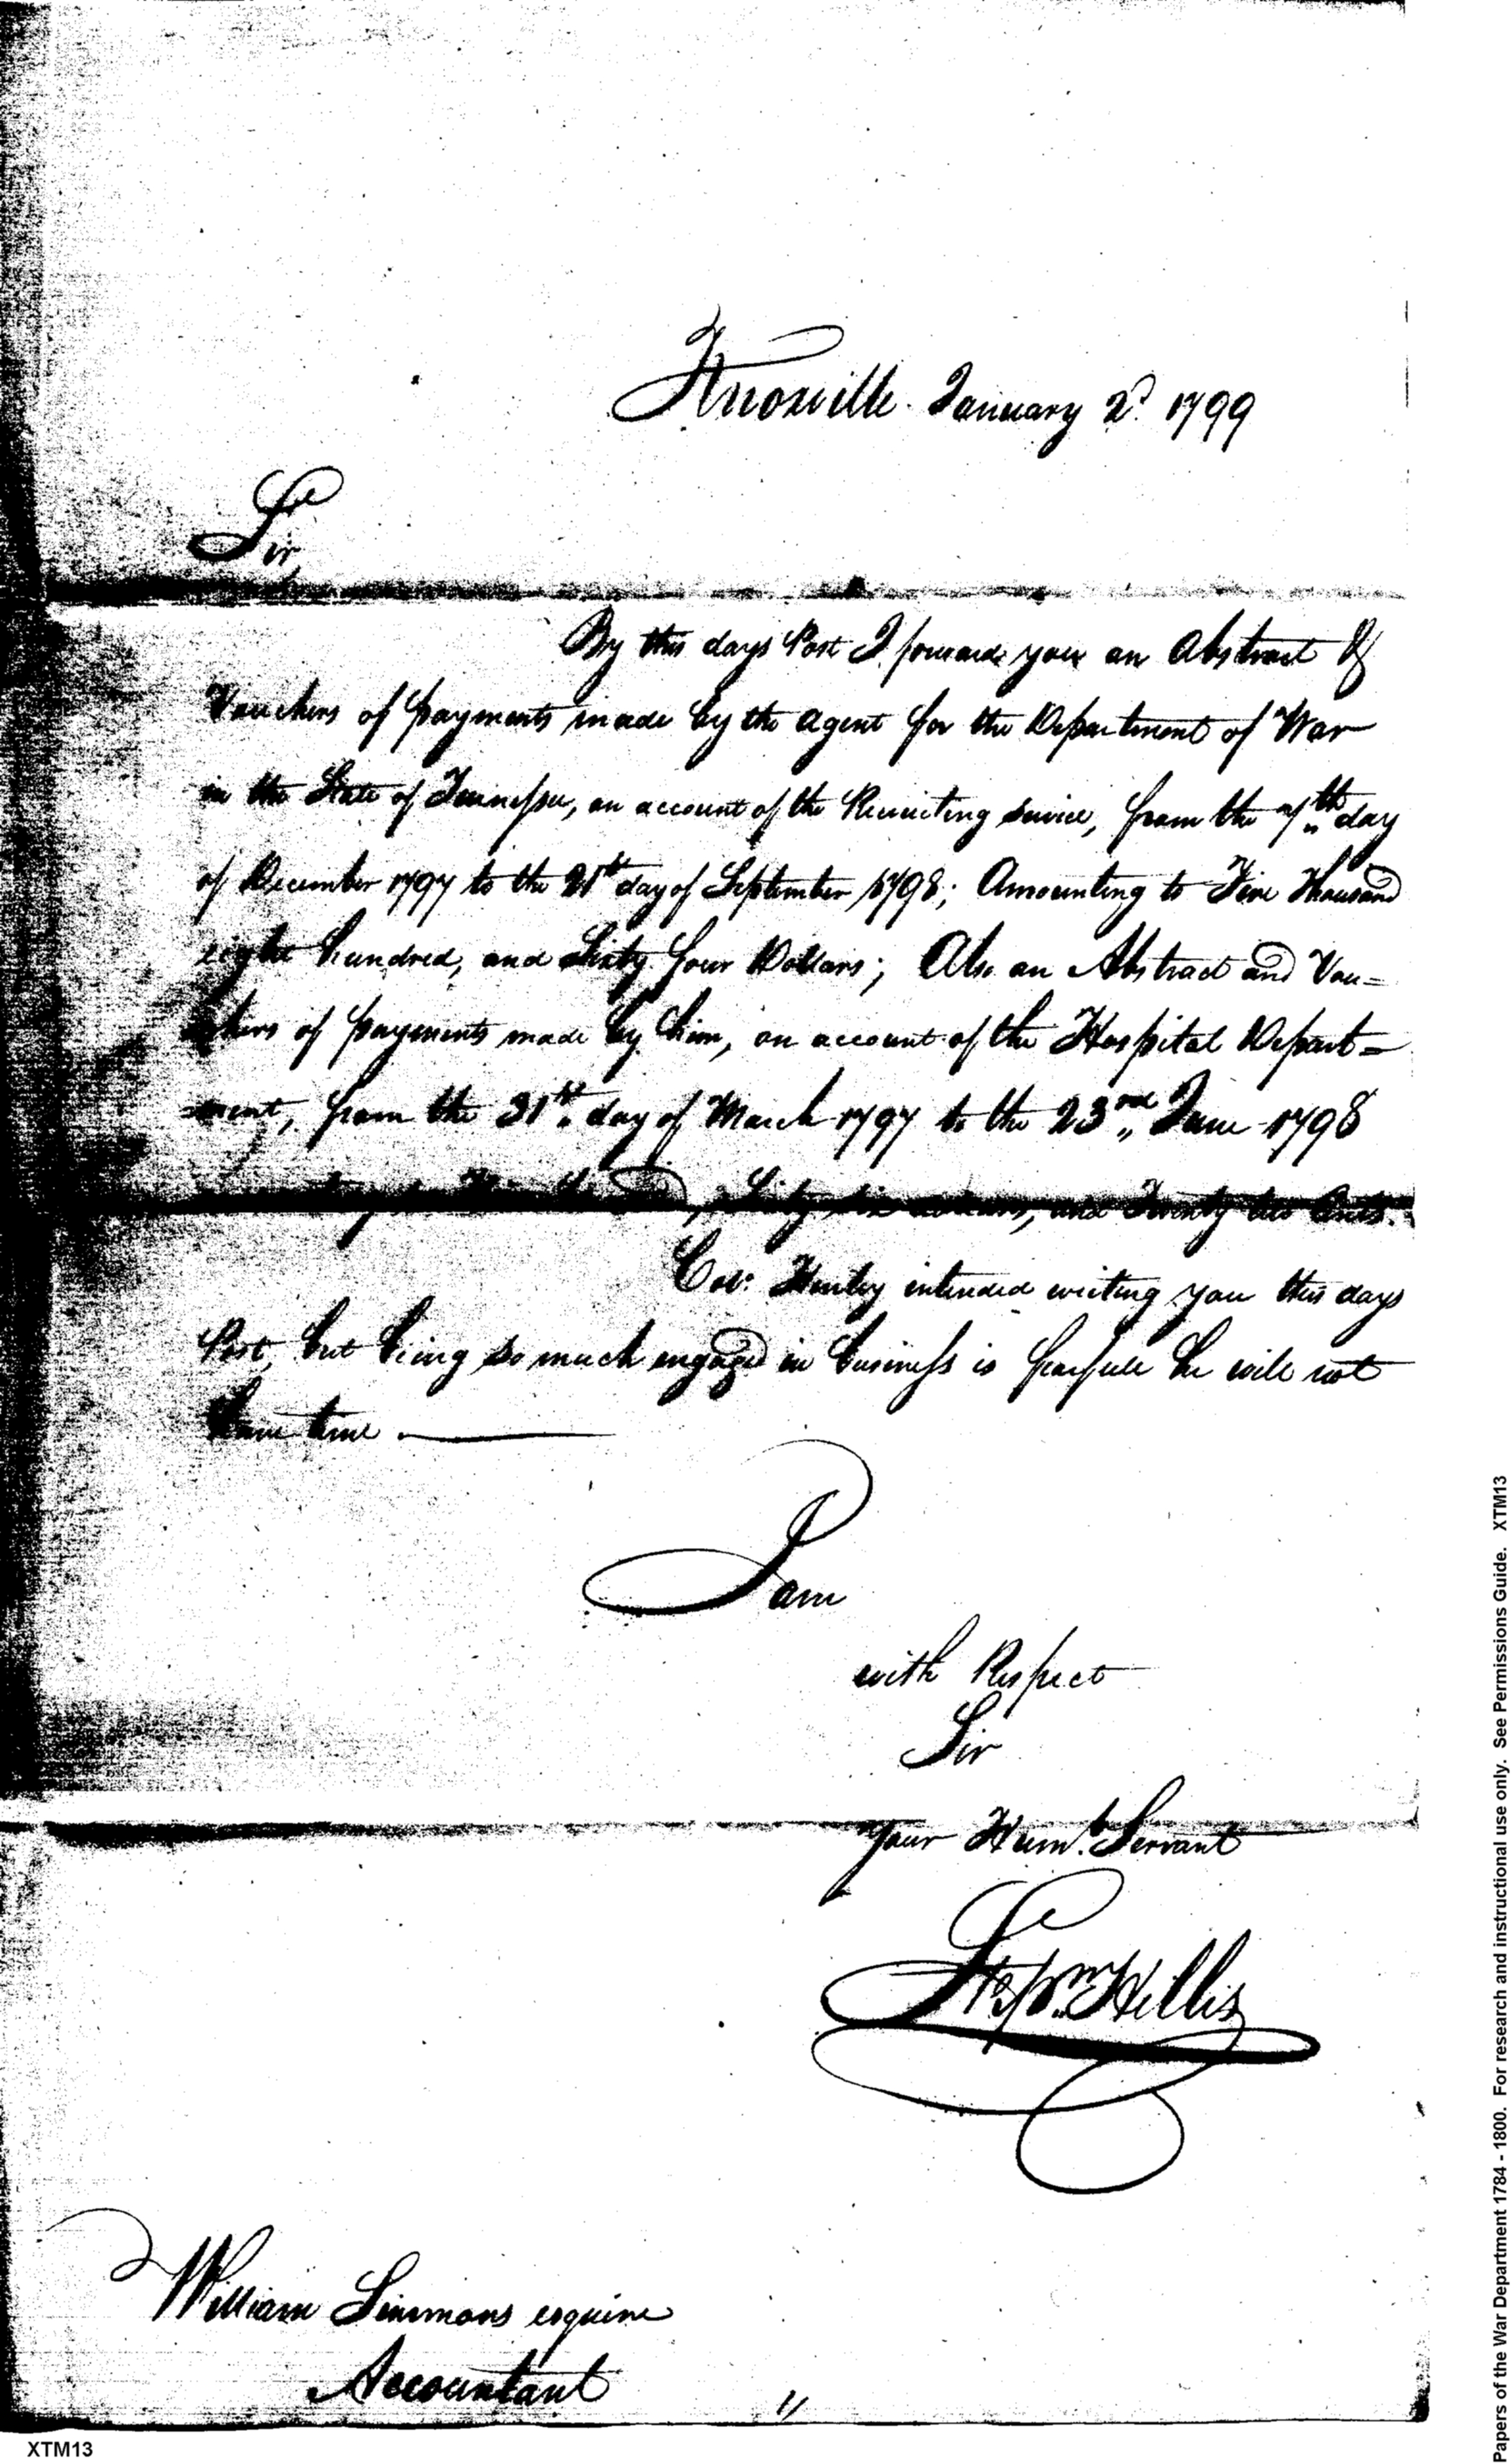 Knoxville January 2d 1799
Sir,
By this days Post I forward you an Abstract &
Vouchers of payments made by the agent for the Department of War
in the State of Tennessee, on account of the Recruiting service, from the 7th day
of December 1797 to the 21st day of September 1798; Amounting to Five Thousand
eight hundred, and Sixty four Dollars; Also an Abstract and Vou=
chers of payments made by him, on account of the Hospital Depart=
=ment, from the 31st day of March 1797 to the 23rd June 1798
Sixty six dollars, and Twenty two Cents.
Col: Henley intended writing you this days
Post, but being so much engaged in business is fearfull he will not
have time.
I am
with Respect
Sir
Your Humb. Servant
Hillis
William Simmons esquire
Accountant
XTM13
Papers of the War Department 1784 - 1800. For research and instructional use only. See Permissions Guide. XTM13